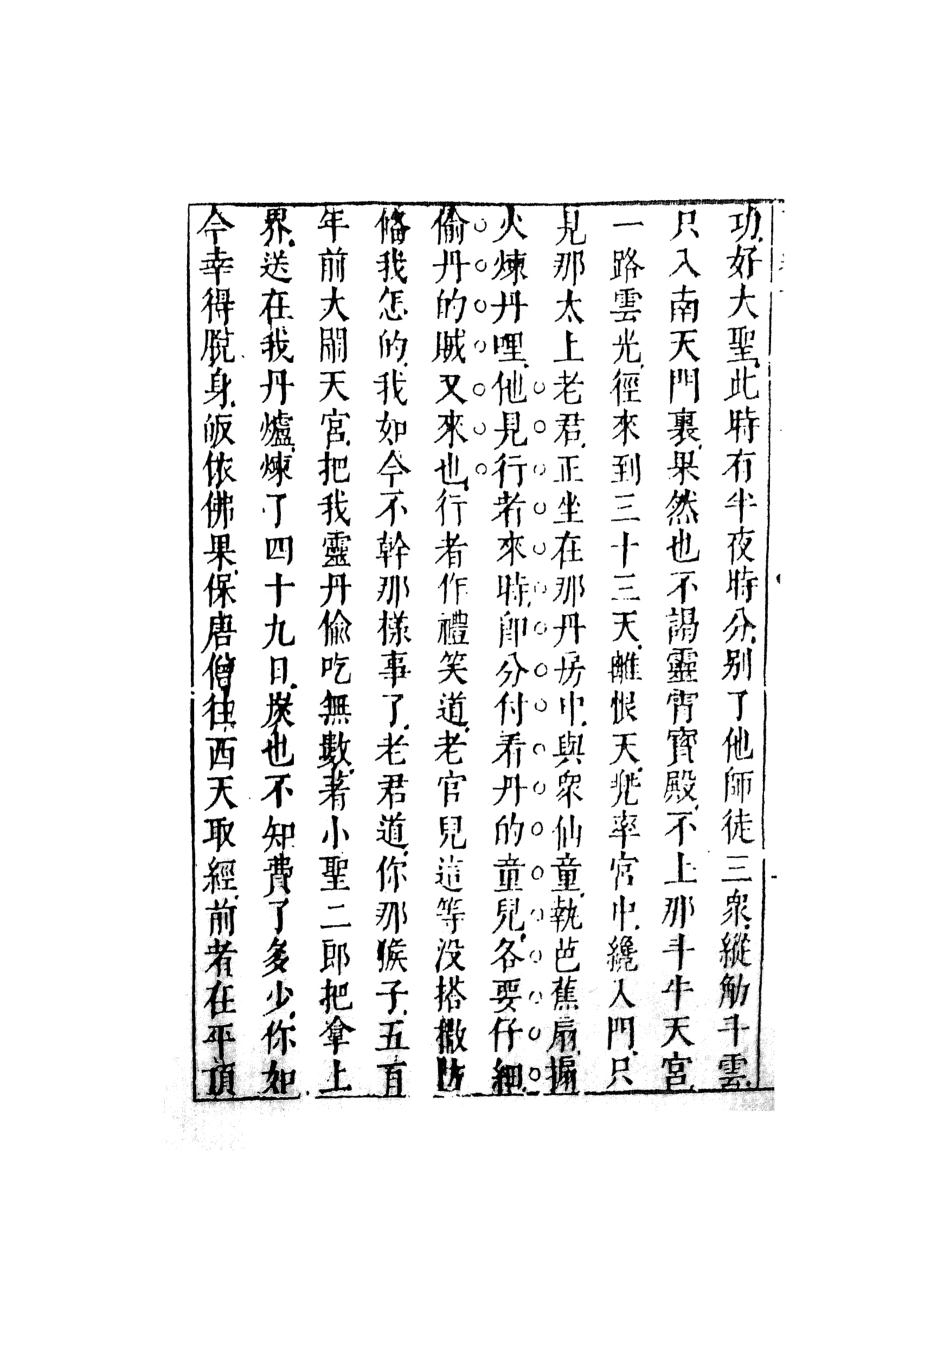 功好大聖此時有半夜時分別了他師徒三衆縱觔斗雲
只入南天門裏果然也不謁靈霄寳殿不上那斗牛天宮
一路雲光徑來到三十三天離恨天兠率宮中纔入門只
見那太上老君正坐在那丹房中與衆仙童執芭蕉扇搧
火煉丹哩他見行者來時即分付看丹的童兒各要仔細
偷丹的賊又來也行者作禮笑道老官兒這等没搭撒防
俻我怎的我如今不幹那樣事了老君道你那猴子五百
年前大鬧天宮把我靈丹偷吃無數著小聖二郎把拿上
界送在我丹爐煉了四十九日炭也不知費了多少你如
今幸得脱身皈依佛果保唐僧往西天取經前者在平頂